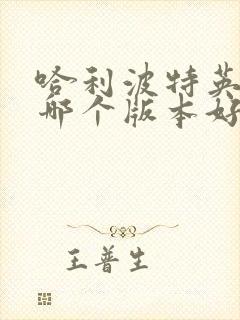 哈利波特英
哪个版本好
王普生